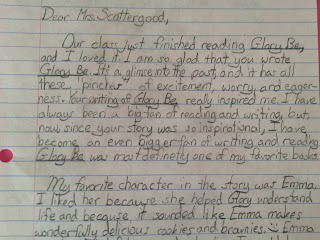 Dear Mrs. Scattergood,
Our class just finished reading Glory Be,
and I loved it. I am so glad that you wrote
Glory Be. It's a glimse into the past, and it has all
these "pinches" of excitement, worry, and eager-
ness. Your writing of Glory Be, realy inspired me. I have
always been a big fan of reading and writing, but
now, since your story was so inspirational, I have
become an even bigger fan of writing and reading.
Glory Be was most definetly one of my favorite books.
My favorite character in the story was Emma.
I liked her because she helped Glory understand
life and because it sounded like Emma makes
wonderfully delicious cookies and brownies.